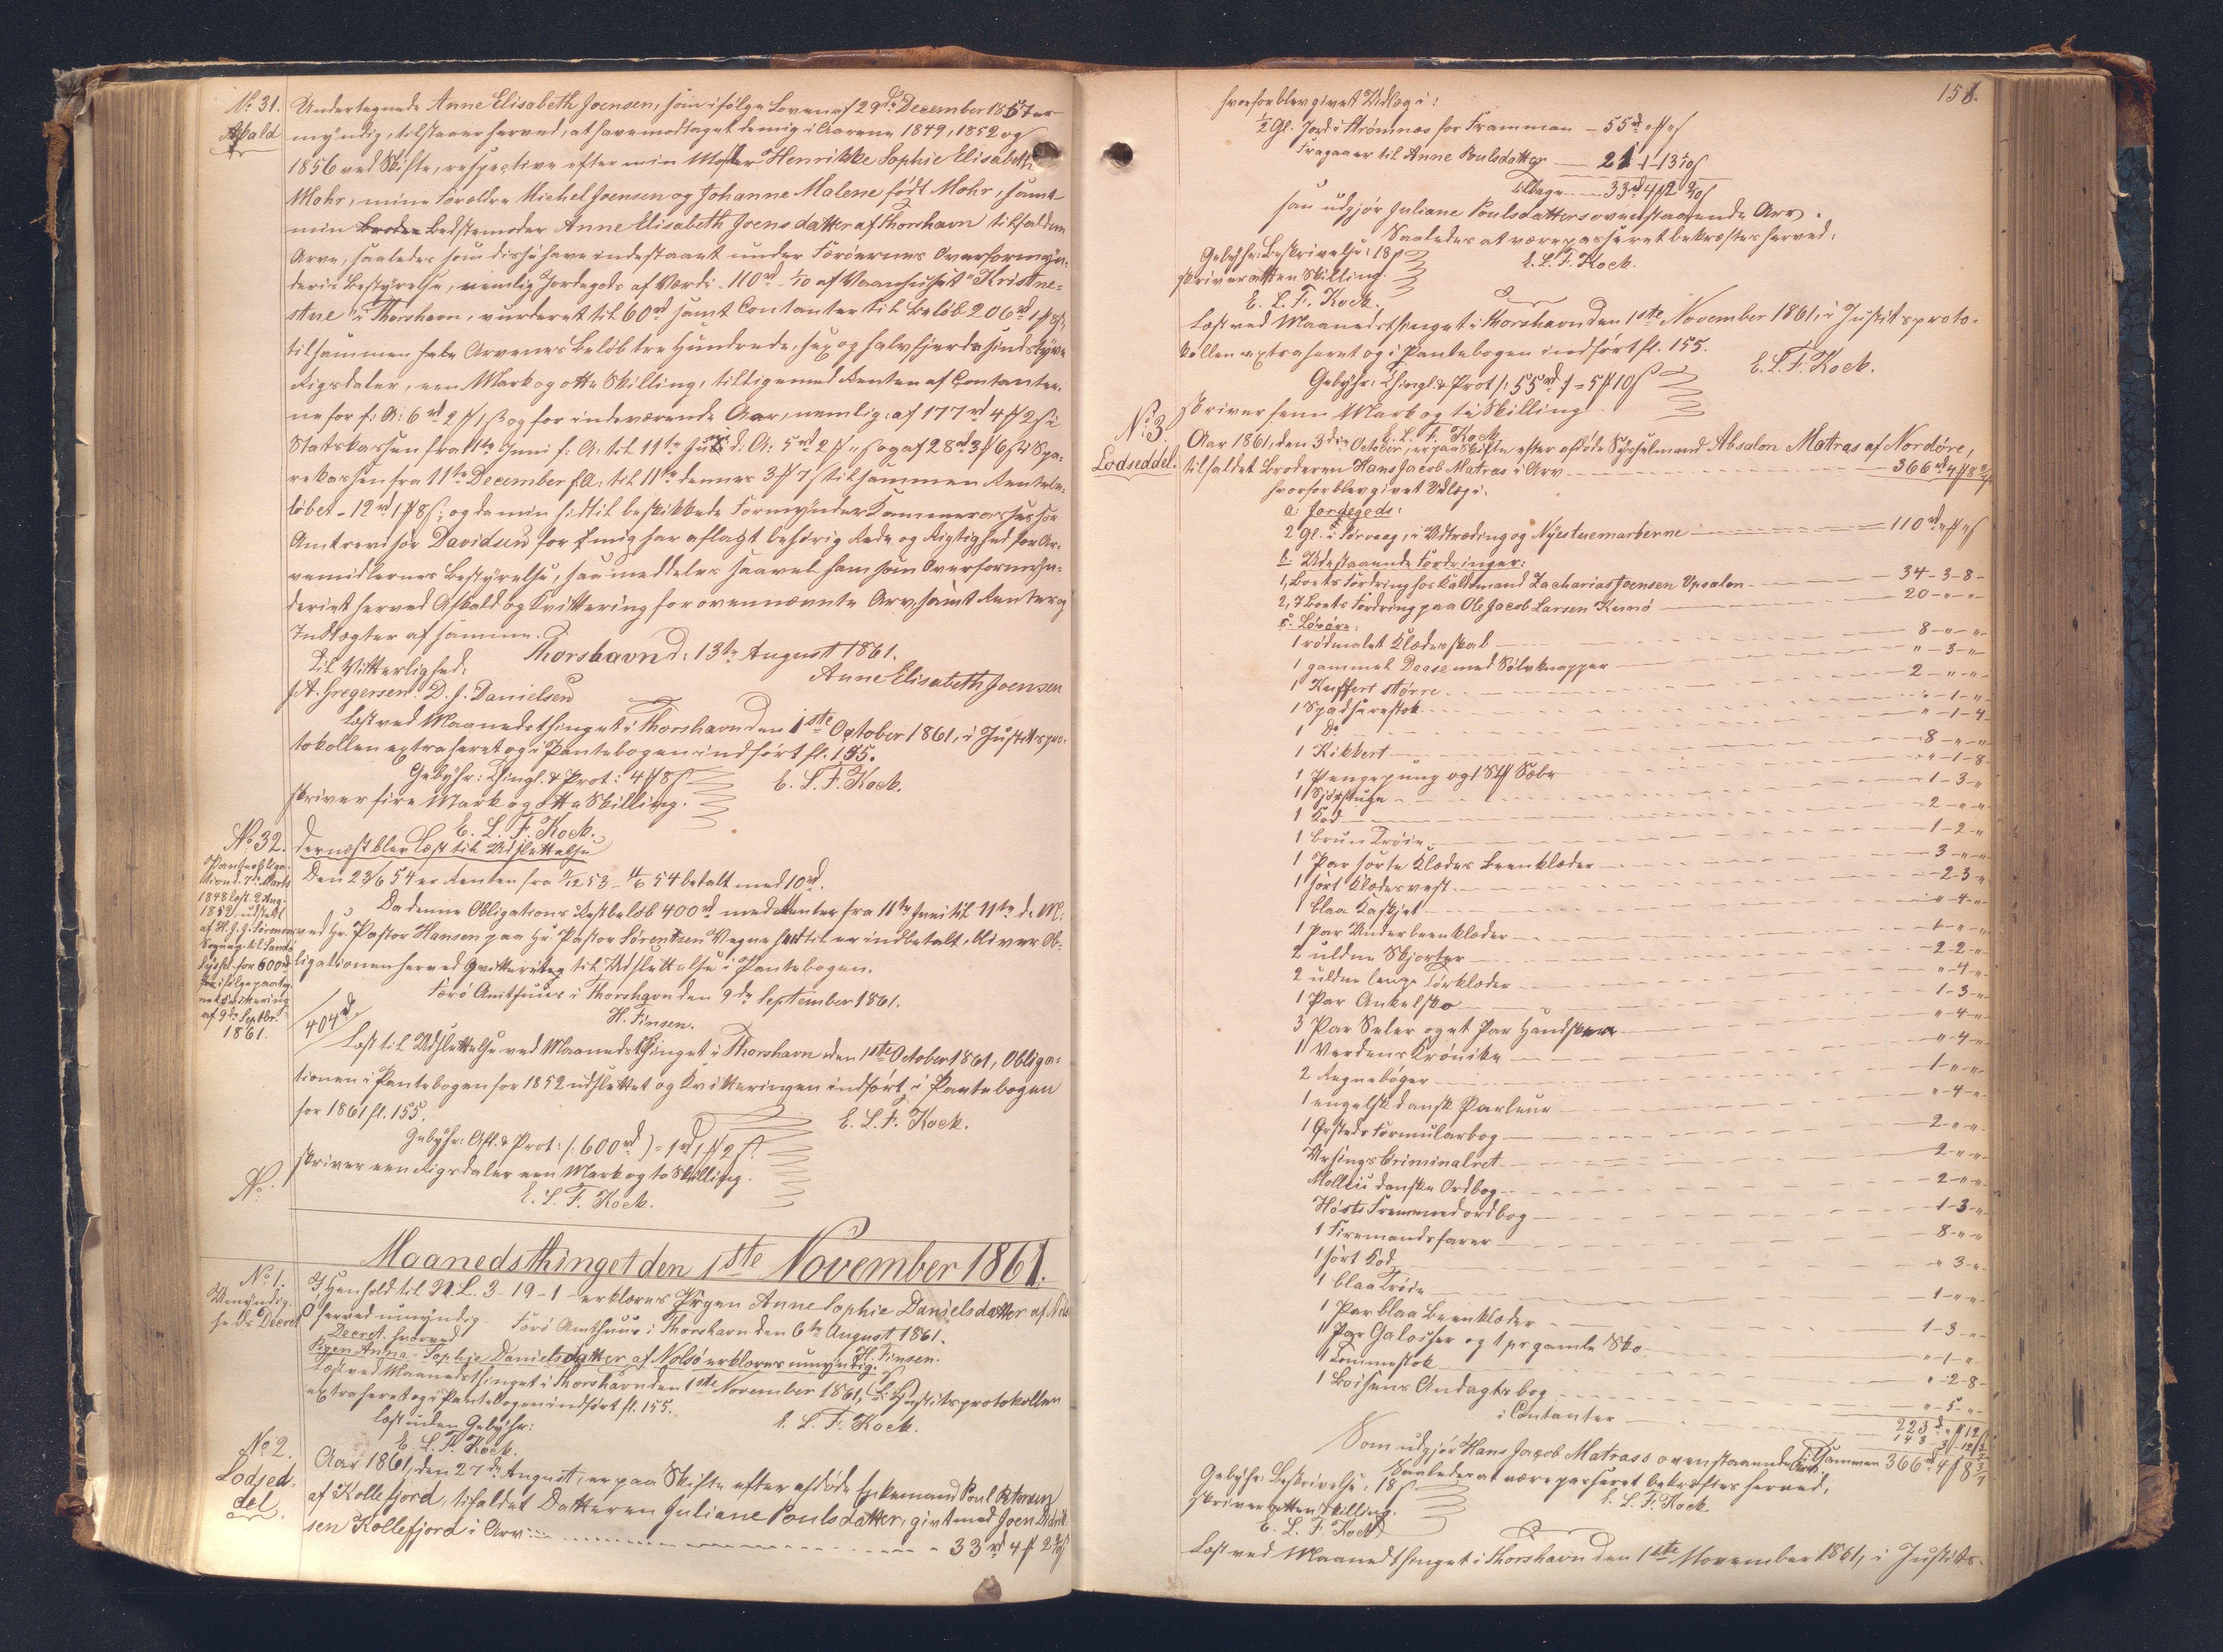 No 31.
Afkald
Undertegnede Anne Elisabeth Joensen, som ifølge Loven af 29de December 1857 er
myndig, tilstaaer herved, at have modtaget de mig i Aarene 1849, 1852 og
1856 ved Skifte, respective efter min Moster Henrikke Sophie Elisabeth
Mohr, mine Forældre Michel Joensen og Johanne Malene født Mohr, samt
min Bedstemoder Anne Elisabeth Joensdatter af Thorshavn tilfaldne
Arve, saaledes som disse have indestaaet under Færøernes Overformyn-
deris Bestyrelse, nemlig Jordegods af Værdi 110rd 1/10 af Vaanhuset "Kristne-
stue" i Thorshavn, vurderet til 60rd samt Contanter til Beløb 206rd 1 # 8 ß,
tilsammen hele Arvenes Beløb tre Hundrede, sex og halvfjerdesindstyve
Rigsdaler, een Mark og otte Skilling, tilligemed Renten af Contanter-
ne for f: A: 6rd 2 # 1 ß og for indeværende Aar, nemlig: af 177rd 4 # 2 ß i
Statskassen fra 11te Juni f. A. til 11te Juni d. A. 5rd 2 # " ß og af 28rd 3 # 6 ß i Spa-
rekassen fra 11te December f. A. til 11te dennes 3 # 7 ß tilsammen Rentebe-
løbet 12rd 1 # 8 ß; og da min hidtil beskikkede Formynder Kammerassessor
Amtrevisor Davidsen for mig har aflagt behørig Rede og Rigtighed for Ar-
vemidlernes Bestyrelse, saa meddeles saavel ham som Overformyn-
deriet herved Afkald og Kvittering for ovennævnte Arv samt Renter og
Indtægter af samme.
Thorshavn d: 13te August 1861.
Til Vitterlighed:
Anne Elisabeth Joensen
J. A. Gregersen. D. J. Danielsen
Læst ved Maanedsthinget i Thorshavn den 1ste October 1861, i Justitspro-
tokollen extraheret og i Pantebogen indført fl. 155.
Gebyhr: Thingl. & Prot: 4 # 8 ß
E. L. F. Kock.
skriver fire Mark og otte Skilling.
E. L. F. Kock.
No 32.
Panteobliga-
tion d. 7de Marts
1848 læst 2 Aug.
1852, udstedt
af H. J. J. Sørensen
Sogneg. til Sandø
Syssel for 600rd
ifølge paateg-
net Kvittering
af 9de Septbr.
1861.
Dernæst blev læst til Udslettelse
Den 23/6 54 er Renten fra 11/12 53 - 11/6 54 betalt med 10rd.
Da denne Obligations Restbeløb 400rd med Renter fra 11te Juni til 11te d. M:
ved Hr. Pastor Hansen paa Hr. Pastor Sørensen Vegne hertil er indbetalt, bliver Ob-
ligationen herved qvitteret til Udslettelse i Pantebogen.
Færø Amthuus i Thorshavn den 9de September 1861.
404rd.
H. Finsen.
Læst til Udslettelse ved Maanedsthinget i Thorshavn den 1ste October 1861, Obliga-
tionen i Pantebogen for 1852 udslettet og Kvitteringen indført i Pantebogen
for 1861 fl. 155.
E. L. F. Kock.
Gebyhr: Afl. & Prot: (: 600rd ) = 1rd 1 # 2 ß.
skriver een Rigsdaler een Mark og to Skilling.
E. L. F. Kock.
No.
Maanedsthinget den 1ste November 1861.
No 1.
Umyndig-
heds Decret
I Henhold til D. L. 3-19-1 erklæres Pigen Anne Sophie Danielsdatter af Nols-
ø herved umyndig. Færø Amthuus i Thorshavn den 6te August 1861.
H. Finsen.
Decret. hvorved
Pigen Anna Sophie Danielsdatter af Nolsø erklæres umyndig.
Læst ved Maanedsthinget i Thorshavn den 1ste November 1861, i Justitsprotokollen
extraheret og i Pantebogen indført fl. 155.
læst uden Gebyhr:
E. L. F. Kock.
E. L. F. Kock.
No 2.
Lodsed-
del.
Aar 1861, den 27de August, er paa Skifte efter afdøde Enkemand Poul Petersen
af Kollefjord, tilfaldet Datteren Juliane Poulsdatter, givt med Joen Didrik-
sen Kollefjord i Arv 33rd 4 # 2 9/10 ß
158.
hvorfor blev givet Udlæg i:
1/2 Gl. Jord i Strømnæs for Frammen - 55rd " # " ß
Fragaaer til Anne Poulsdatter 21-1-13 1/10 ß
tilbage 33rd 4 # 2 9/10 ß
saa udgjør Juliane Poulsdatters ovenstaaende Arv.
Saaledes at være passeret bekræftes herved.
Gebyhr: Beskrivelse: 18 ß
E. L. F. Kock.
skriver atten Skilling.
E. L. F. Kock.
Læst ved Maanedsthinget i Thorshavn den 1ste November 1861, i Justitsproto-
kollen extraheret og i Pantebogen indført fl. 155.
E. L. F. Kock.
Gebyhr: Thingl. & Prot (: 55rd :) = 5 # 10 ß
skriver fem Mark og ti Skilling.
E. L. F. Kock
No 3.
Lodseddel.
Aar 1861, den 3die October, er paa Skifte efter afdøde Sysselmand Absalon Matras af Nordøre,
tilfaldet Broderen Hans Jacob Matras i Arv 366rd 4 # 8 2/7 ß
hvorfor blev givet Udlæg i:
a: Jordegods:
2 Gl. i Sørvaag, i Udtræding og Nyestuemarkerne 110rd " # " ß
b: Udestaaende Fordringer:
1, Boets Fordring hos Kaldsmand Zacharias Joensen Upsalon 34-3-8-
2, 7 Boets Fordring paa Ole Jacob Larsen Kunø 20-"-"-
c. Løsøre:
1 rødmalet Klædeskab 8-"-"-
1 gammel Daase med Sølvknapper "-3-"-
1 Kuffert større 2-"-"-
1 Spadserestok "-1-"-
1 Do "-1-4-
1 Kikkert 8-"-"-
1 Pengepung og 1 St# Sæbe "-1-8-
1 Sjøstrøje 1-3-"-
1 Kod 2-"-"-
1 brun Trøie 1-2-"-
1 Par sorte Klædes Beenklæder 3-"-"-
1 sort Klædesvest 2-3-"-
1 blaa Kaskjet "-4-"-
1 Par Underbeenklæder 1-"-"-
2 uldne Skjorter 2-2-"-
2 uldne lange Tørklæder "-4-"-
1 Par Ankelsko 1-3-"-
3 Par Seler og et Par Handsker "-4-"-
1 Verdens Krønike "-4-"-
2 Regnebøger 1-"-"-
1 engelsk dansk Parleur "-4-"-
1 Ørsteds Formularbog 2-"-"-
Ursings Criminalret 2-"-"-
Molbeis danske Ordbog 2-"-"-
Høsts Fremmedordbog 1-3-"-
1 Firemandsfarer 8-"-"-
1 sort Kod "-3-"-
1 blaa Trøie 1-"-"-
1 Par blaa Beenklæder 1-3-"-
1 Par Galoscher og 1 pr gamle Sko "-1-"-
1 Tommestok "-2-8-
1 Boisens Andagtsbog "-5-"-
223rd " # 12 ß
i Contanter 143-3-12 2/7
Tilsammen 366rd 4 # 8 2/7
Som udgjør Hans Jacob Matrass ovenstaaende Arv.
Saaledes at være passeret bekræftes herved,
Gebyhr: Beskrivelse, 18 ß
E. L. F. Kock
skriver atten Skilling.
E. L. F. Kock
Læst ved Maanedsthinget i Thorshavn den 1ste November 1861, i Justits-